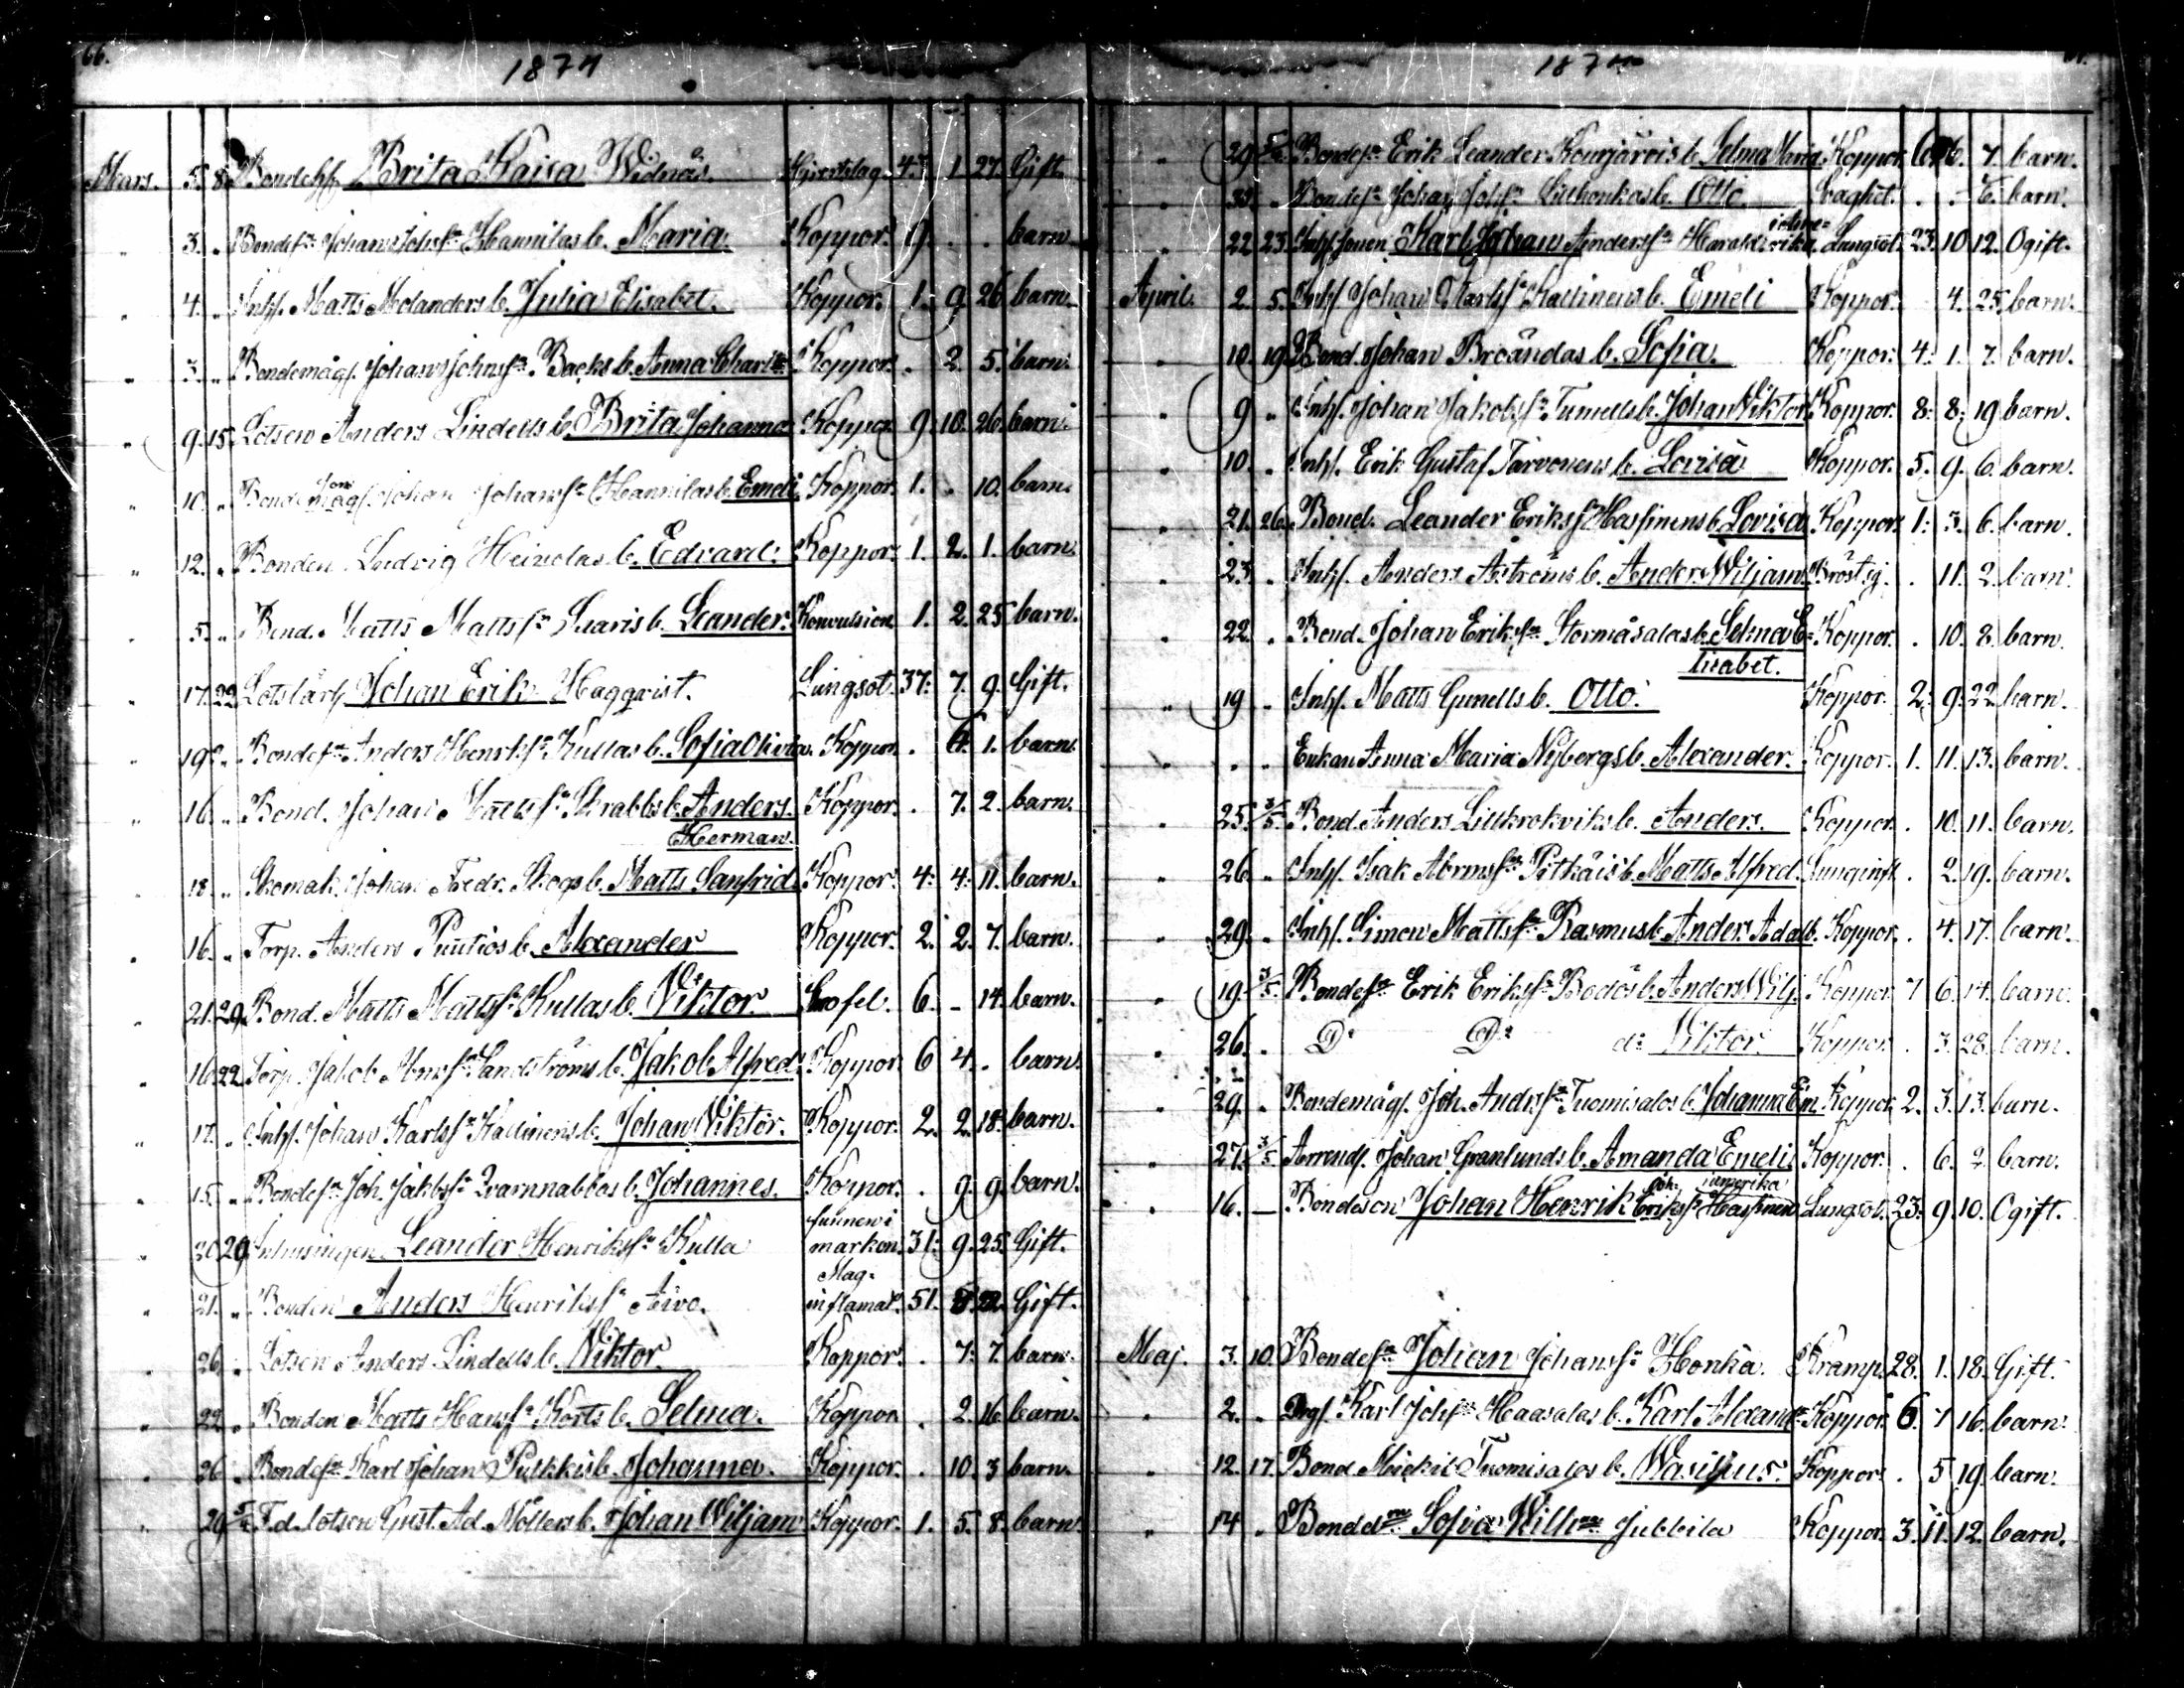 66.
1874
Mars. 5. 8. Bondeh. Brita Kaisa Widnäs. Hjertslag. 4. 1 27. Gift.
" 3. " Bondes. Johans Johs. Hannilas b. Maria. Koppor. 9. . . barn
" 4. " Inh. Matts Molanders b. Julia Elisabet. Koppor. 1. 9 26 barn.
" 3. " Bondemåg. Johans Johns. Backs b. Anna Charl. Koppor. . 2. 5. barn.
" 9. 15. Lotsen Anders Lindells b. Brita Johanna Koppor 9. 10. 26. barn.
" 10. " Bonde måg. Johan Johans. Hannilas b. Emeli. Koppor. 1. . 10. barn.
" 12. " Bonden Ludvig Heinolas b. Edvard. Koppor. 1. 2. 1. barn.
" 5. " Bond. Matts Matts. Suaris b. Leander. Konvulsion 1. 2. 25 barn.
" 17. 22 Lotslärl. Johan Erik Haggqvist. Lungsot. 37. 7. 9. Gift.
" 19. " Bondes. Anders Henrks. Kullas b. Sofia Olivia. Koppor . 4. 1. barn.
" 16. " Bond. Johan Matts. Skrabbs b. Anders. Koppor. . 7. 2. barn.
Herman.
" 18. " Skomak. Johan Fredr. Skogs b. Matts Sanfrid Koppor. 4. 4. 11. barn.
" 16. " Torp. Anders Puutios b. Alexander Koppor. 2. 2. 7. barn.
" 21. 29. Bond. Matts Matts. Kullas b. Viktor. Skrofel. 6. - 14. barn.
" 16. 22. Torp. Jakob Abms. Sandströms b. Jakob Alfred. Koppor. 6 4. . barn.
" 17. " Inh. Johan Karls. Kallinens b. Johan Viktor. Koppor. 2. 2. 18. barn.
" 15. " Bondes. Joh. Jakbs. Qvarnnabbas b. Johannes. Koppor. . 9. 9. barn.
funnen i
" 20 29 Inhusingen Leander Henriks. Kulla markon. 31. 9. 25. Gift.
Mag-
" 21. " Bonden Anders Henriks. Aivo. inflamat. 51. 8. 22. Gift.
" 26. " Lotsen Anders Lindells b. Viktor. Koppor. . 7. 7. barn.
" 22. " Bonden Matts Hans. Korts b. Selma. Koppor . 2. 16. barn.
" 26. " Bondes. Karl Johan Pulkkis b. Johanna. Koppor. . 10. 3 barn.
" 29. 5/4 F.d. lotsen Gust. Ad. Möllers b. Johan Wiljam Koppor. 1. 5. 8. barn.
1874
" 29 5/4 Bondes. Erik Leander Kourjärvis b. Selma Maria. Koppor. 6. 7. barn.
" 31. " Bondes. Johan Johs. Lillhonkas b. Otto. Svaghet. . . 6. barn.
" 22 23. Inh. sonen Karl Johan Anders. Harald Lungsot. 23. 10 12. Ogift.
April. 2 5. Inh. Johan Karls. Kallinens b. Emeli Koppor. 4. 25. barn.
" 10. 19. Bond. Johan Broändas b. Sofia. Koppor. 4. 1. 7. barn.
" 9 " Inh. Johan Jakobs. Tunells b. Johan Viktor Koppor. 8. 8. 19 barn.
" 10. " Inh. Erik Gustaf Tarvonens b. Lovisa Koppor. 5. 9. 6. barn.
" 21. 26. Bond. Leander Eriks. Hassinens b. Lovisa Koppor. 1. 3. 6. barn.
" 23. " Inh. Anders Åströms b. Anders Wiljam. Bröstsj. . 11. 2. barn.
" 22. " Bond. Johan Eriks. Stormåsalas b. Selma E- Koppor. . 10. 8. barn.
lisabet.
" 19 " Inh. Matts Gunells b. Otto. Koppor. 2. 9. 22. barn.
" " " Enkan Anna Maria Nybergs b. Alexander. Koppor. 1. 11. 13. barn.
" 25. 3/5. Bond. Anders Lillkrokviks b. Anders. Koppor. . 10. 11. barn.
" 26. " Inh. Isak Abrms. Pitkäis b. Matts Alfred. Lunginfl. . 2. 19. barn.
" 29. " Inh. Simon Matts. Rasmus b. Anders Adalb. Koppor. . 4. 17. barn.
" 19. 3/5. Bondes. Erik Eriks. Bodös b. Anders Wilj. Koppor. 7 6. 14. barn.
" 26. " D:o D:o d:o Viktor. Koppor. . 3. 28. barn.
" 29. " Bondemåg. Joh. Andrs. Tuomisalos b. Johanna Em. Koppor. 2. 3. 13. barn.
" 27. 3/5 Arrend. Johan Granlunds b. Amanda Emeli. Koppor. . 6. 2. barn.
i amerika
" 16. — Bondeson Johan Henrik Eriks. Hassinen Lungsot. 23. 9. 10. Ogift.
Maj. 3. 10. Bondes. Johan Johans. Honka. Kramp. 28. 1. 18. Gift.
" 2. " Drgs. Karl Johs. Haasalas b. Karl Alexand. Koppor. 6. 7 16. barn.
" 12. 17. Bond. Mickil Tuomisalos b. Wasilius. Koppor. . 5. 19. barn.
" 14 " Bondd. Sofia Wilh. Jubbila Koppor. 3. 11. 12. barn.